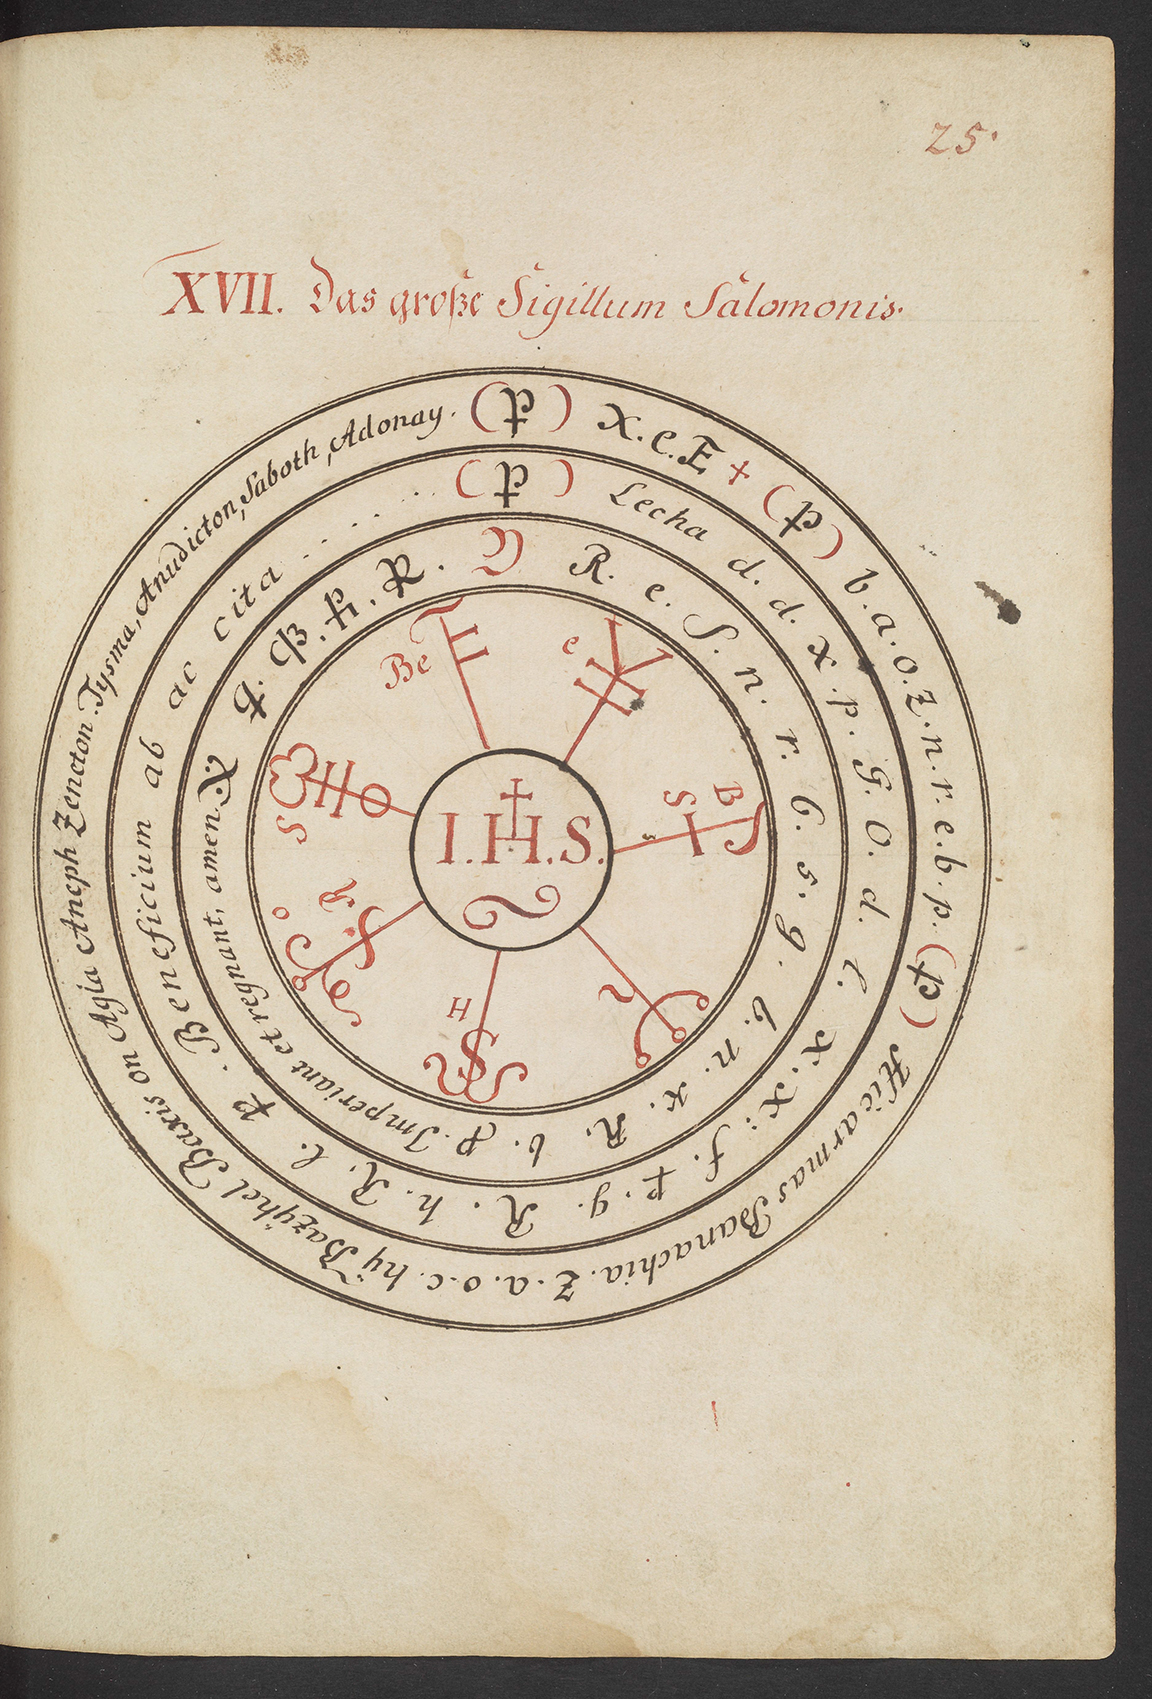 25.
XVII. Das große Sigillum Salomonis.
X. e. E + ( ) b. a. o. Z. n. r. e. b. p. ( ) Hic armas Banachia. Z. a. o. c. hÿ Bazÿhel Buxis on Agia Aneph Zencton. Tysma, Anudicton, Saboth, Adonay. ( )
Lecha d. d. x. p. G. O. d. X. X: f. p. g. R. h. R. l. p. Beneficium ab ac cita ( )
R. e. S. n. r. 6. s. g. b. n. x. R. v. P. Imperiant et regnant, amen. X
Be
e
B
S
H
S
I.H.S.